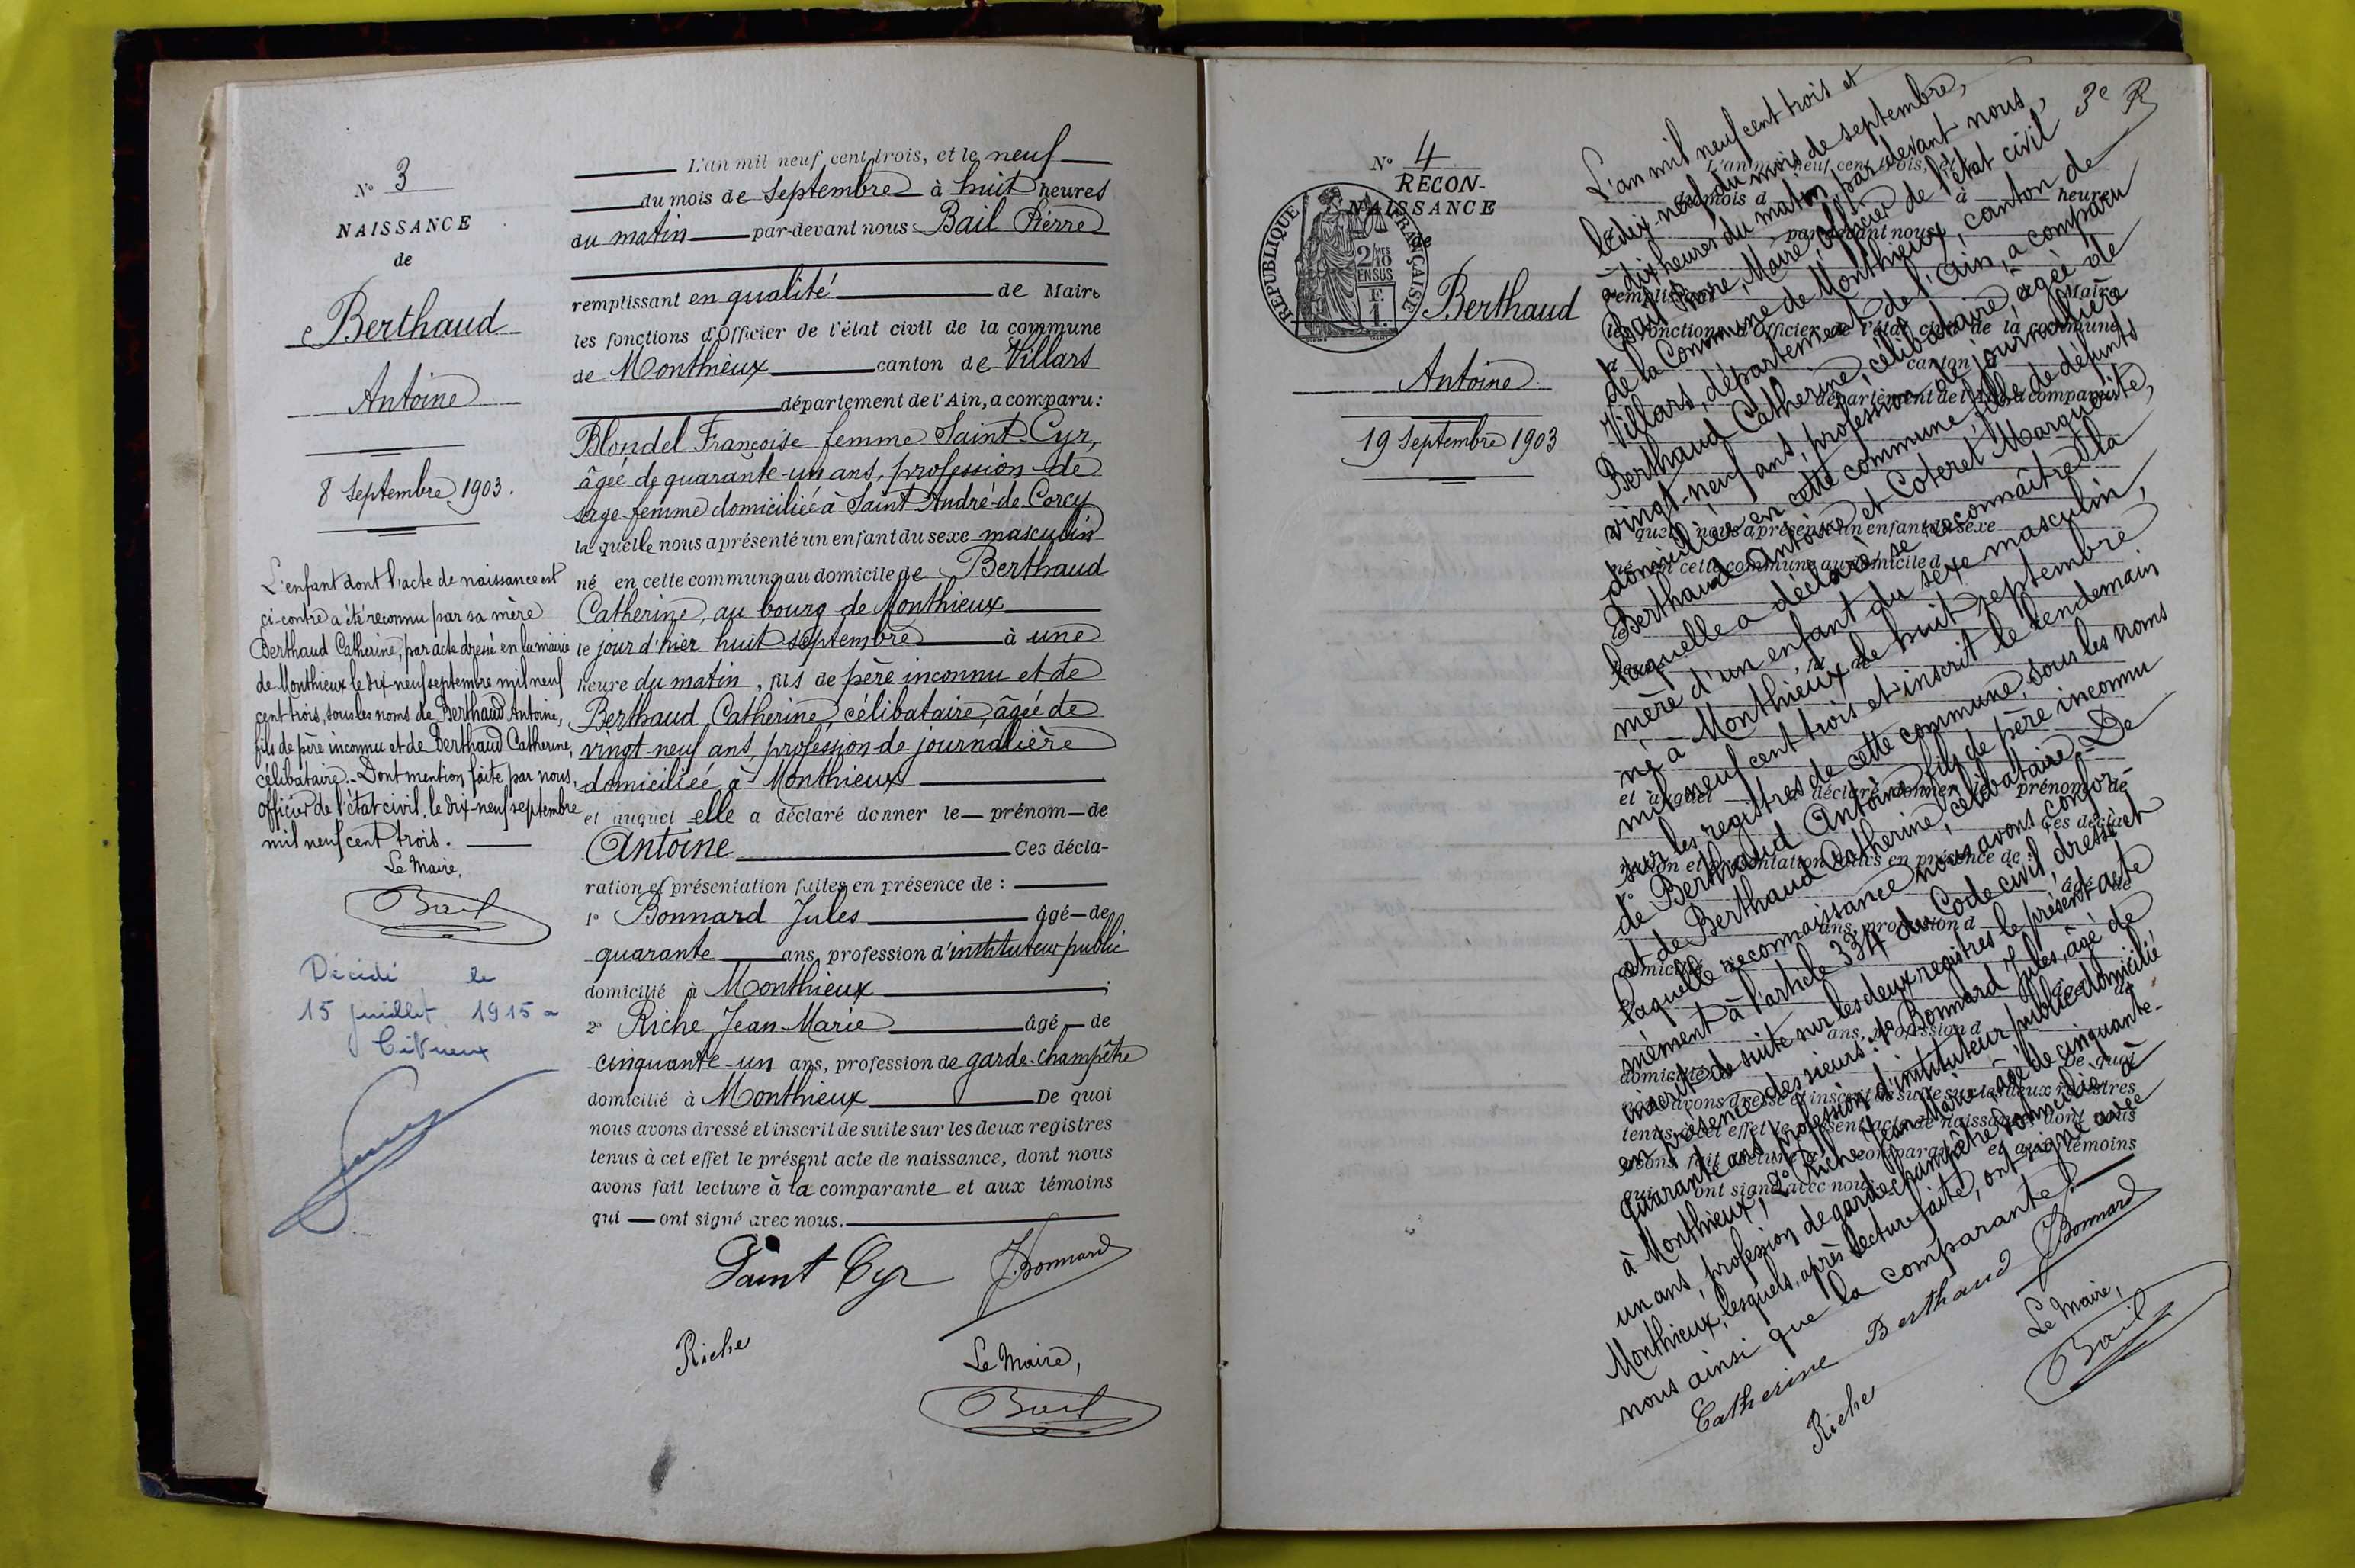 N° 3
NAISSANCE
de
Berthaud
Antoine
8 Septembre 1903.
L'enfant dont l'acte de naissance est
ci-contre a été reconnu par sa mère
Berthaud Catherine, par acte dressé en la mairie
de Monthieux le dix-neuf septembre mil neuf
cent trois, sous les noms de Berthaud Antoine,
fils de père inconnu et de Berthaud Catherine,
célibataire. - Dont mention faite par nous,
officier de l'état civil, le dix-neuf septembre
mil neuf cent trois.
Le Maire,
Bail
Décédé le
15 juillet 1915 a
L'an mil neuf cent trois, et le neuf
du mois de Septembre à huit heures
du matin par-devant nous Bail Pierre
remplissant en qualité de Maire
les fonctions d'Officier de l'état civil de la commune
de Monthieux canton de Villars
département de l'Ain, a comparu :
Blondel Françoise femme Saint-Cyr,
âgée de quarante-un ans, profession de
sage-femme domiciliée à Saint André-de-Corcy
la quelle nous a présenté un enfant du sexe masculin
né en cette commune au domicile de Berthaud
Catherine, au bourg de Monthieux
le jour d'hier huit septembre à une
heure du matin, fils de père inconnu et de
Berthaud Catherine célibataire, âgée de
vingt-neuf ans, profession de journalière
domiciliée à Monthieux
et auquel elle a déclaré donner le prénom de
Antoine Ces décla-
ration et présentation faites en présence de :
1° Bonnard Jules âgé de
quarante ans, profession d'instituteur public
domicilié à Monthieux ;
2° Riche Jean-Marie âgé de
cinquante-un ans, profession de garde-champêtre
domicilié à Monthieux De quoi
nous avons dressé et inscrit de suite sur les deux registres
tenus à cet effet le présent acte de naissance, dont nous
avons fait lecture à la comparante et aux témoins
qui ont signé avec nous.
Saint Cyr J. Bonnard
Riche
Le Maire,
Bail
3e R
N° 4
RECON-
NAISSANCE
de
REPUBLIQUE FRANÇAISE
2/10
EN SUS
F.
1.
Berthaud
Antoine
19 Septembre 1903
L'an mil neuf cent trois et
le dix-neuf du mois de septembre,
à dix heures du matin, par devant nous,
Bail Pierre, Maire, officier de l'état civil
de la Commune de Monthieux, canton de
Villars, département de l'Ain, a comparu
Berthaud Catherine, célibataire, âgée de
vingt-neuf ans, profession de journalière
domiciliée en cette commune, fille de défunts
Berthaud Antoine et Coteret Marguerite,
laquelle a déclaré se reconnaître la
mère d'un enfant du sexe masculin,
né à Monthieux le huit septembre
mil neuf cent trois et inscrit le lendemain
sur les registres de cette commune, sous les noms
de Berthaud Antoine, fils de père inconnu
et de Berthaud Catherine, célibataire. - De
laquelle reconnaissance nous avons confor-
mément à l'article 334 du Code civil, dressé et
inscrit de suite sur les deux registres le présent acte
en présence des sieurs : 1° Bonnard Jules, âgé de
quarante ans, profession d'instituteur public domicilié
à Monthieux, 2° Riche Jean-Marie âgé de cinquante-
un ans, profession de garde-champêtre domicilié à
Monthieux, lesquels, après lecture faite, ont signé avec
nous ainsi que la comparante.
Catherine Berthaud J. Bonnard
Riche
Le Maire,
Bail